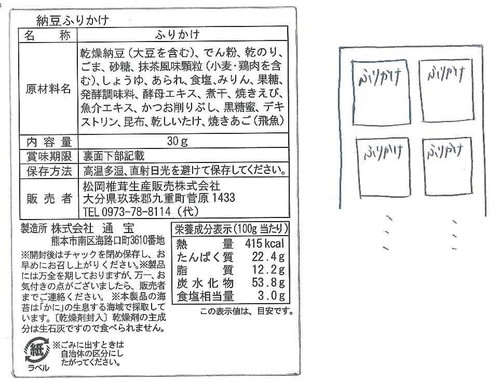 納豆ふりかけ
名称 ふりかけ
原材料名 乾燥納豆(大豆を含む)、でん粉、乾のり、
ごま、砂糖、抹茶風味顆粒(小麦・鶏肉を含
む)、しょうゆ、あられ、食塩、みりん、果糖、
発酵調味料、酵母エキス、煮干、焼きえび、
魚介エキス、かつお削りぶし、黒糖蜜、デキ
ストリン、昆布、乾しいたけ、焼きあご(飛魚)
内容量 30g
賞味期限 裏面下部記載
保存方法 高温多湿、直射日光を避けて保存してください。
販売者 松岡椎茸生産販売株式会社
大分県玖珠郡九重町菅原1433
TEL 0973-78-8114(代)
製造所 株式会社 通宝
熊本市南区海路口町3610番地
※開封後はチャックを閉め保存し、お
早めにお召し上がりください。※製品
には万全を期しておりますが、万一、お
気付きの点がございましたら、販売者
までご連絡ください。※本製品の海
苔は「かに」の生息する海域で採取して
います。〔乾燥剤封入〕乾燥剤の主成
分は生石灰ですので食べられません。
栄養成分表示(100g当たり)
熱量 415kcal
たんぱく質 22.4g
脂質 12.2g
炭水化物 53.8g
食塩相当量 3.0g
この表示値は、目安です。
紙
ラベル
※ごみに出すときは
自治体の区分にし
たがってください。
ふりかけ ふりかけ
ふりかけ ふりかけ